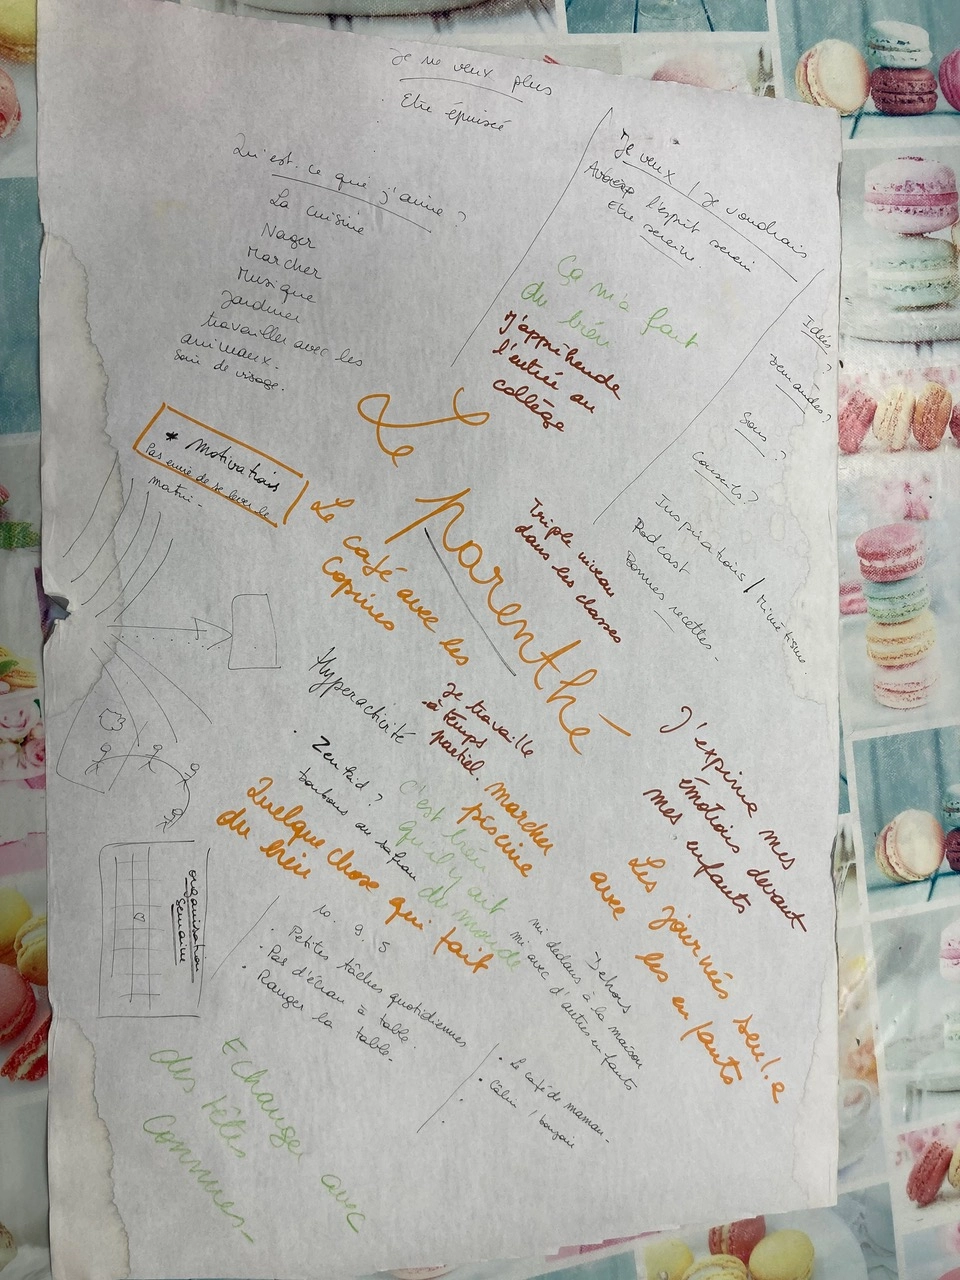 Je ne veux plus
Etre épuisée
Qu'est-ce que j'aime ?
La cuisine
Nager
Marcher
Musique
Jardiner
travailler avec les
animaux.
Soin de visage.
Je veux / Je voudrais
l'esprit serein
Etre sereine.
Ça m'a fait
du bien
J'appréhende
l'entrée au
collège
Idées ?
demandes ?
Sons ?
Conseils ?
Inspirations / Mimétisme.
Podcast
Bonnes recettes.
* Motivations
Pas envie de se lever le
matin.
La parenthè
Le café avec les
Copines
Triple niveau
dans les classes
Hyperactivité
Je travaille
à temps
partiel.
· Zenkid ?
bonbons au safran
marcher
piscine
C'est bien
qu'il y ait
du monde
Quelque chose qui fait
du bien
J'exprime mes
émotions devant
mes enfants
Les journées seul.e
avec les enfants
organisation
semaine
10. 9. 5
· Petites tâches quotidiennes
· Pas d'écran à table.
· Ranger la table.
Dehors
mi dedans à la maison
mi avec d'autres enfants
· Le café de maman.
· Câlin / bonjour
Echanger avec
des têtes
Connues.